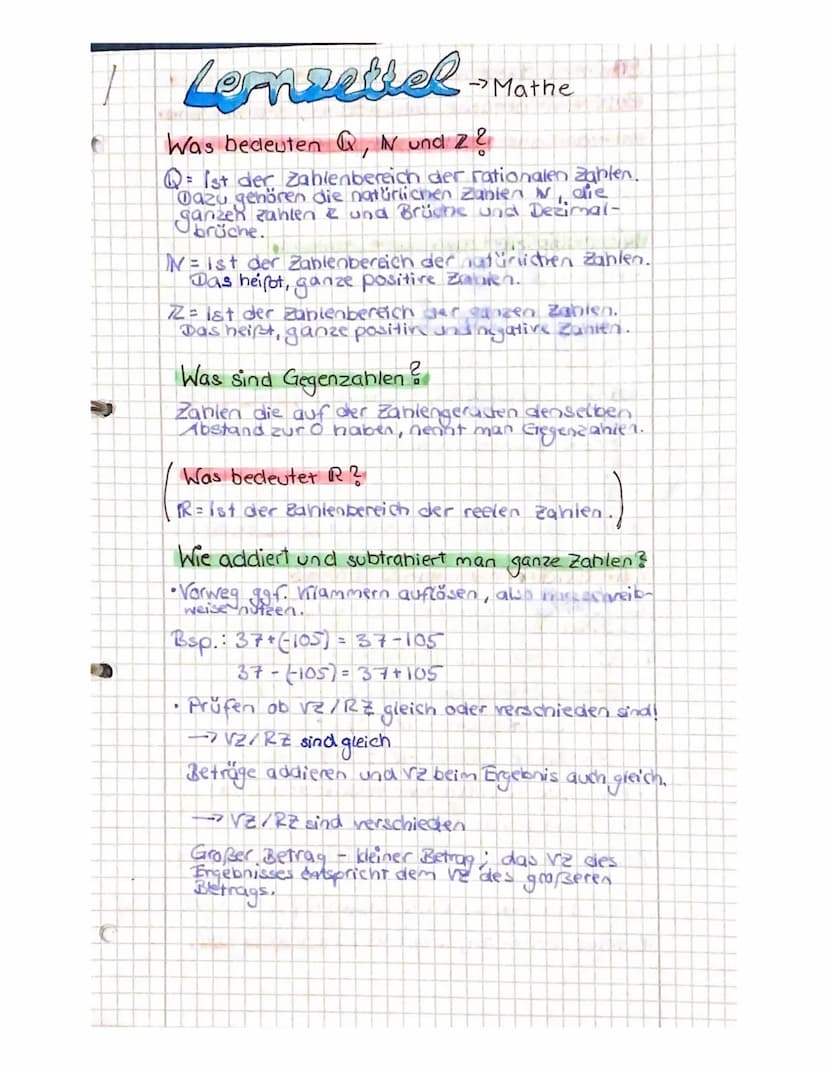 Lernzettel → Mathe
Was bedeuten ℚ, ℕ und ℤ?
ℚ = Ist der Zahlenbereich der rationalen Zahlen.
Dazu gehören die natürlichen Zahlen ℕ, die
ganzen Zahlen ℤ und Brüche und Dezimal-
brüche.
ℕ = ist der Zahlenbereich der natürlichen Zahlen.
Das heißt, ganze positive Zahlen.
ℤ = ist der Zahlenbereich der ganzen Zahlen.
Das heißt, ganze positive und negative Zahlen.
Was sind Gegenzahlen?
Zahlen die auf der Zahlengeraden denselben
Abstand zur 0 haben, nennt man Gegenzahlen.
(Was bedeutet ℝ?
ℝ = ist der Zahlenbereich der reelen Zahlen.)
Wie addiert und subtrahiert man ganze Zahlen?
• Vorweg ggf. Klammern auflösen, also schreib-
weise nutzen.
Bsp.: 37+(-105) = 37-105
37 - (-105) = 37+105
• Prüfen ob VZ/RZ gleich oder verschieden sind!
→ VZ/RZ sind gleich
Beträge addieren und VZ beim Ergebnis auch gleich.
→ VZ/RZ sind verschieden
Großer Betrag - kleiner Betrag; das VZ des
Ergebnisses entspricht dem VZ des großeren
Betrags.